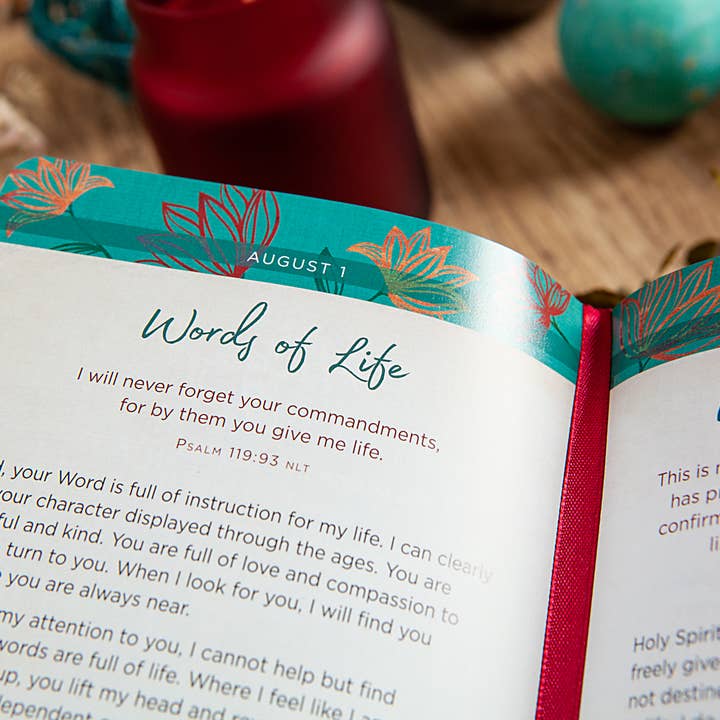 AUGUST 1
Words of Life
I will never forget your commandments,
for by them you give me life.
PSALM 119:93 NLT
your Word is full of instruction for my life. I can clearly
your character displayed through the ages. You are
and kind. You are full of love and compassion to
turn to you. When I look for you, I will find you
you are always near.
my attention to you, I cannot help but find
words are full of life. Where I feel like I
up, you lift my head and
This is
has
confirm
Holy Spirit
freely give
not